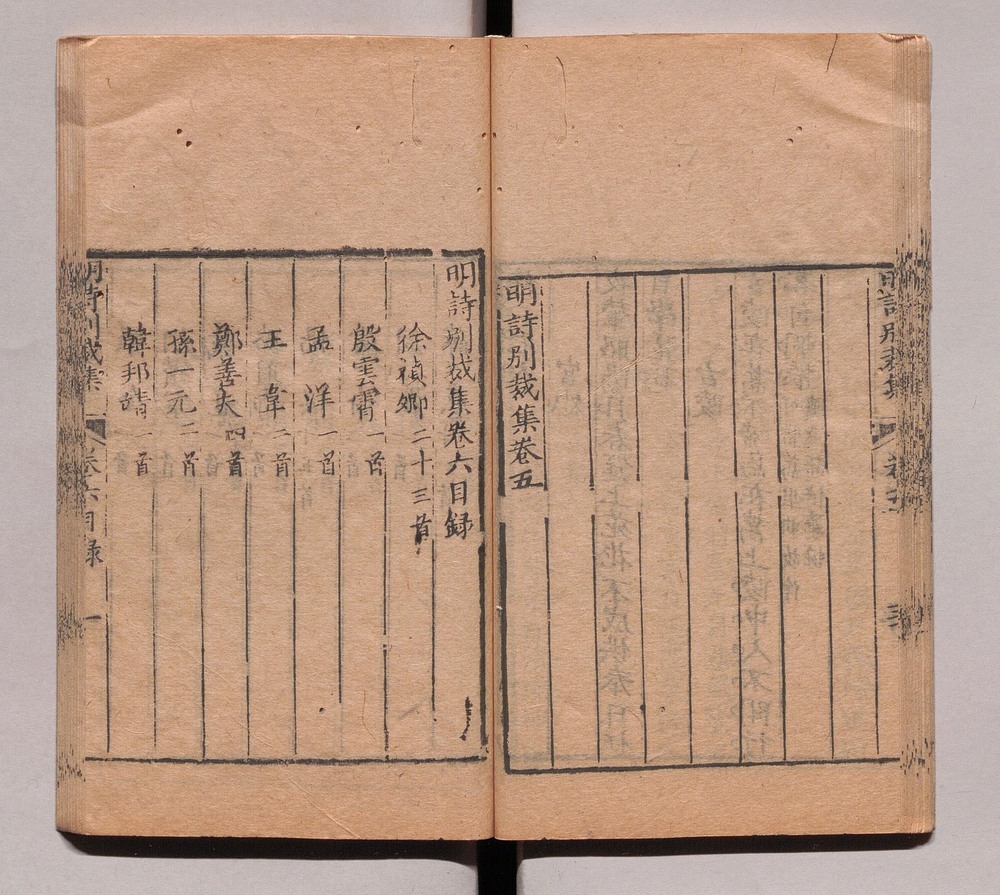 明詩別裁集
明詩別裁集卷五
明詩別裁集卷六目録
徐禎卿二十三首
殷雲霄一首
孟洋一首
王韋二首
鄭善夫四首
孫一元二首
韓邦靖一首
明詩別裁集
卷六目録
一